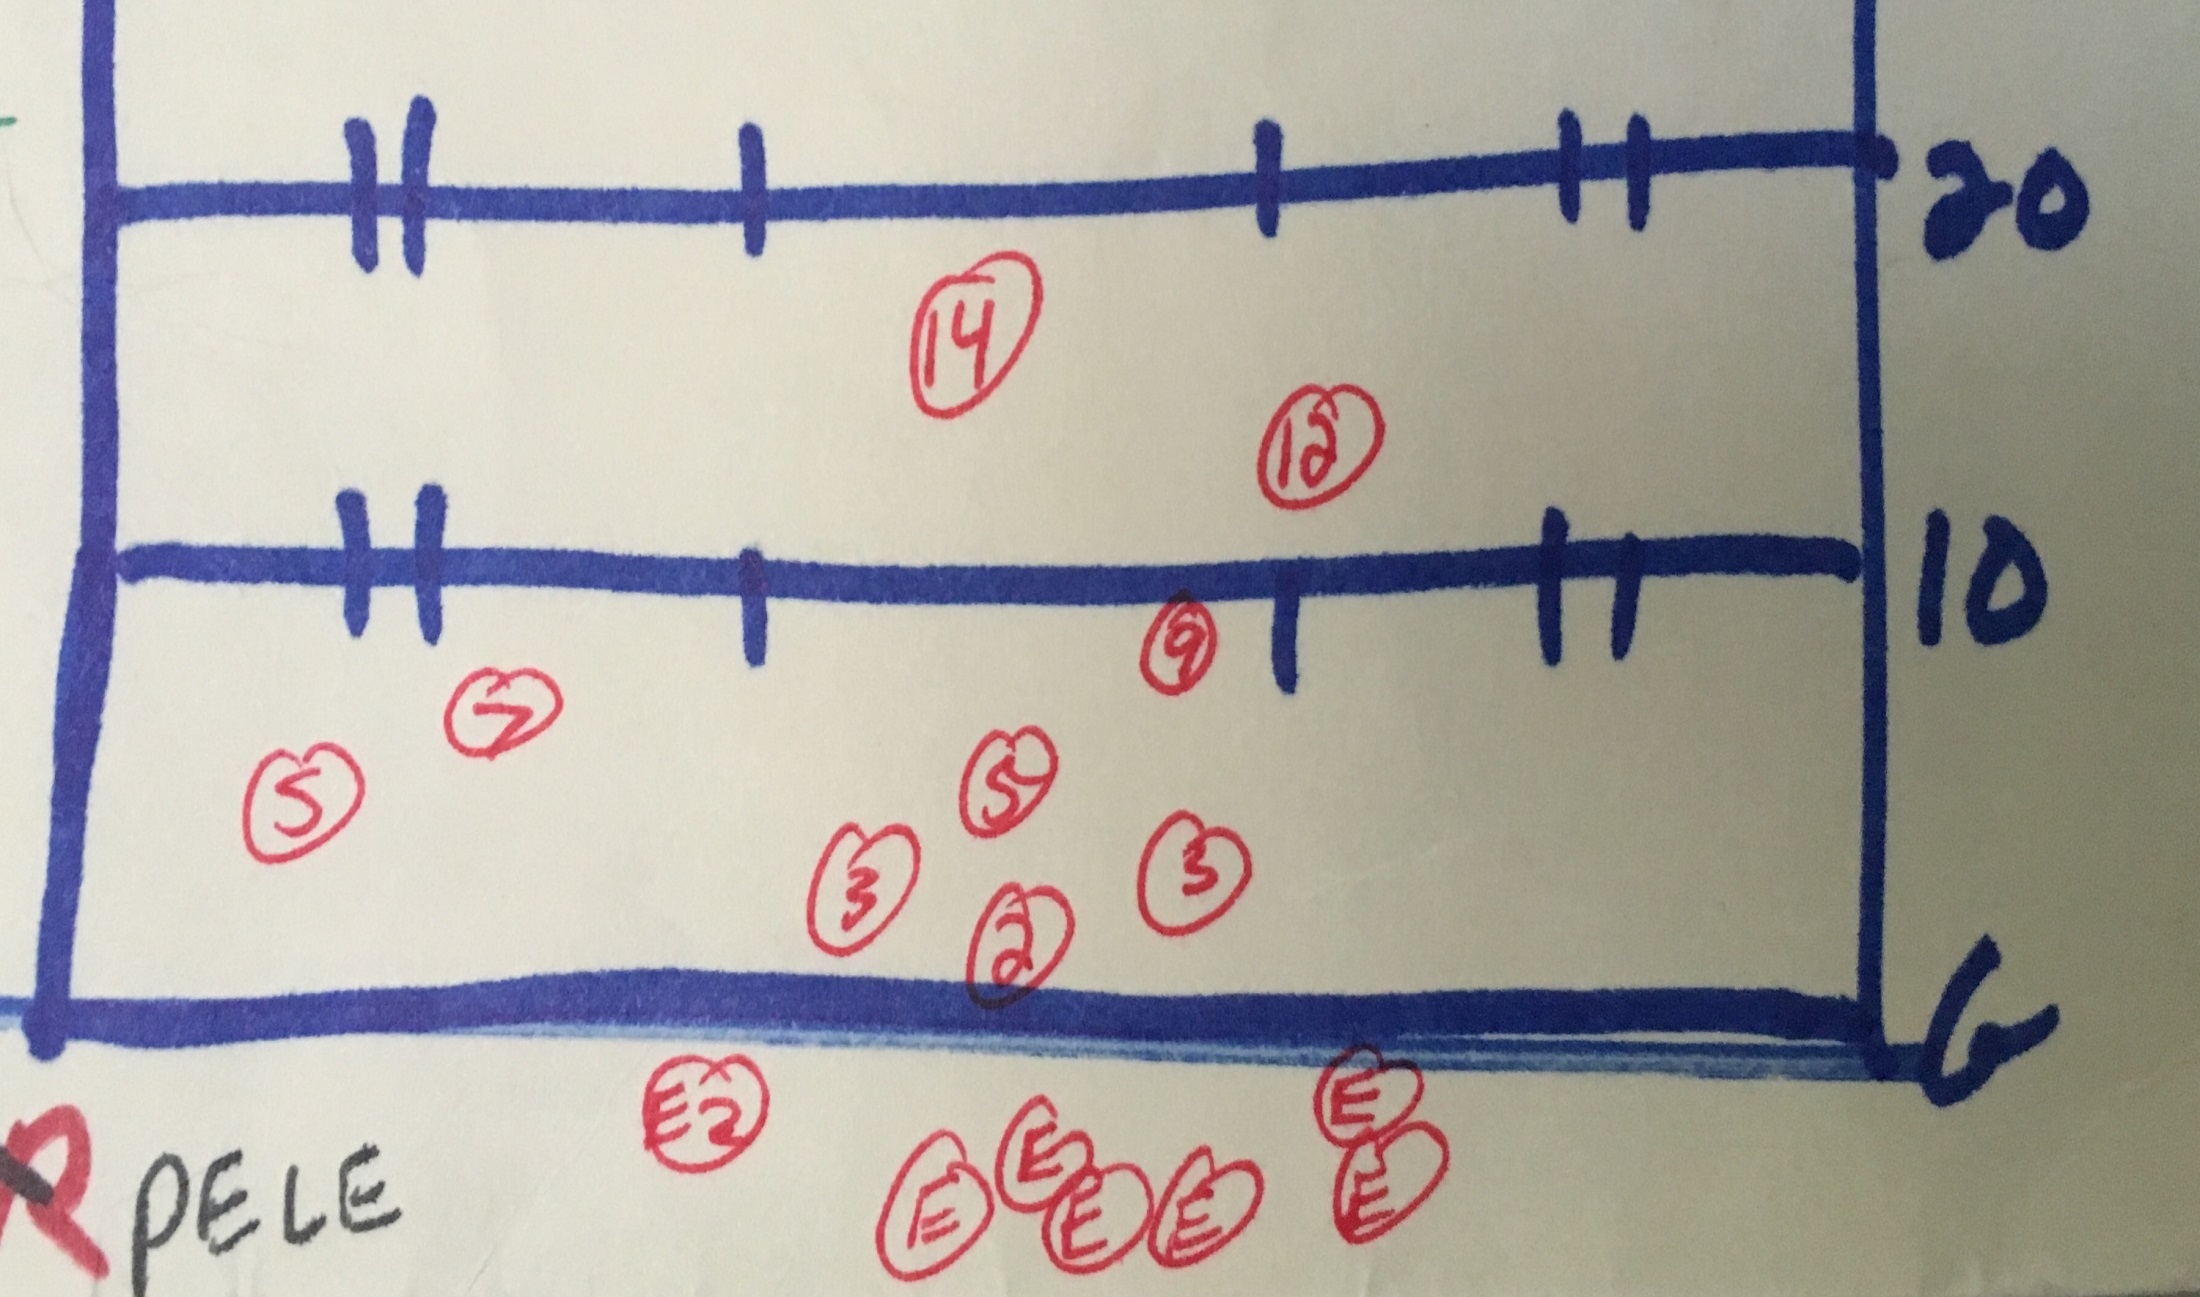 20
14
12
10
9
7
5
5
3
3
2
G
E2
E
E
E
E
E
E
R PELE